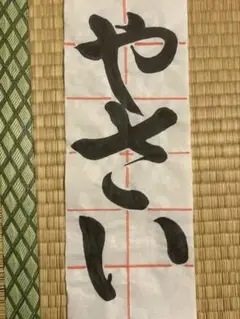 やさい